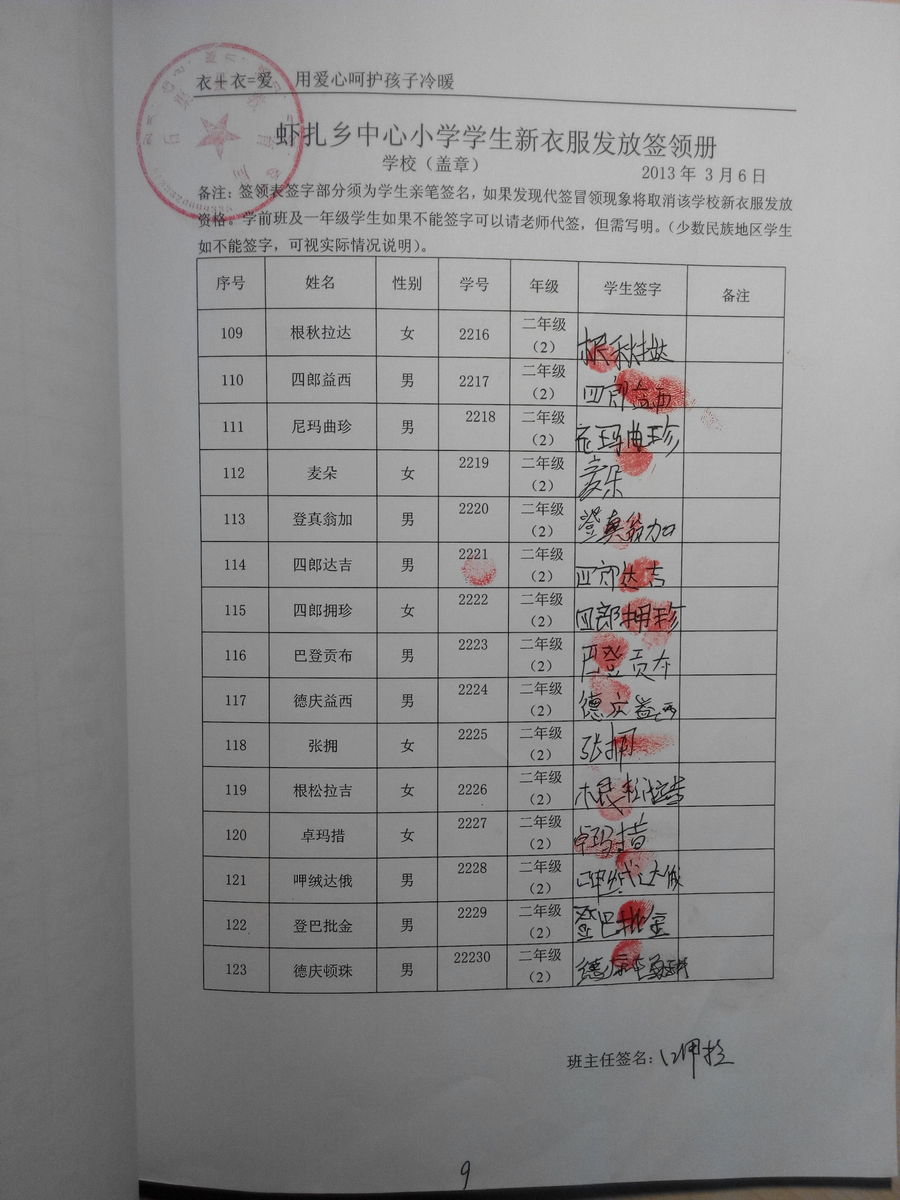 衣+衣=爱 用爱心呵护孩子冷暖
虾扎乡中心小学学生新衣服发放签领册
学校（盖章）
2013 年 3 月 6 日
备注：签领表签字部分须为学生亲笔签名，如果发现代签冒领现象将取消该学校新衣服发放
资格。学前班及一年级学生如果不能签字可以请老师代签，但需写明。（少数民族地区学生
如不能签字，可视实际情况说明）。
序号 姓名 性别 学号 年级 学生签字 备注
109 根秋拉达 女 2216 二年级（2） 根秋拉达
110 四郎益西 男 2217 二年级（2） 四郎益西
111 尼玛曲珍 男 2218 二年级（2） 尼玛曲珍
112 麦朵 女 2219 二年级（2） 麦朵
113 登真翁加 男 2220 二年级（2） 登真翁加
114 四郎达吉 男 2221 二年级（2） 四郎达吉
115 四郎拥珍 女 2222 二年级（2） 四郎拥珍
116 巴登贡布 男 2223 二年级（2） 巴登贡布
117 德庆益西 男 2224 二年级（2） 德庆益西
118 张拥 女 2225 二年级（2） 张拥
119 根松拉吉 女 2226 二年级（2） 根松拉吉
120 卓玛措 女 2227 二年级（2） 卓玛措
121 呷绒达俄 男 2228 二年级（2） 呷绒达俄
122 登巴批金 男 2229 二年级（2） 登巴批金
123 德庆顿珠 男 22230 二年级（2） 德庆顿珠
班主任签名：
9